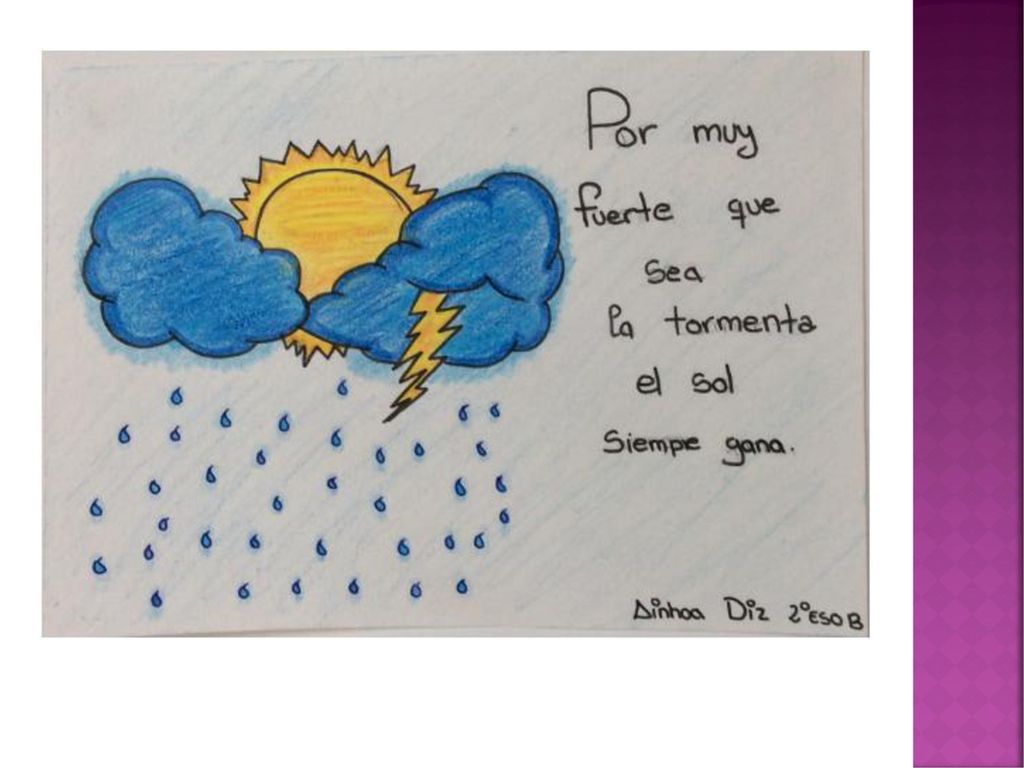 Por muy
fuerte que
sea
la tormenta
el sol
siempre gana.
Ainhoa Diz 2ºESO B